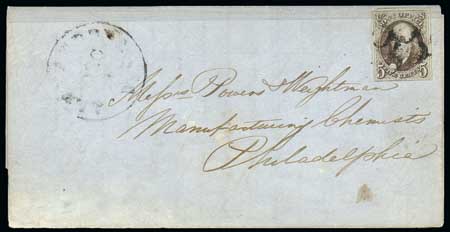 Messrs Powers & Weightman
Manufacturing Chemists
Philadelphia
5 5